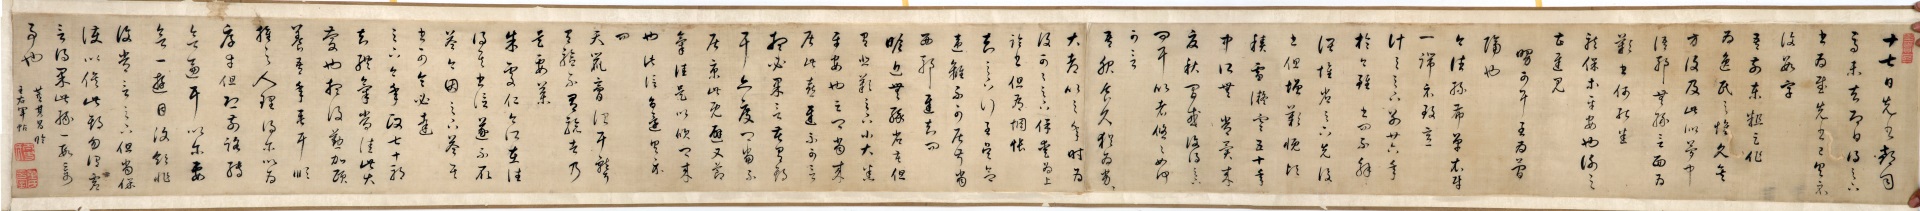 十七日先書郗司
馬未去即日得足下
書為慰先書以具示
復數字
吾前東粗足作
為逸民之懷久矣
方復及此似夢中
語耶無緣言面為
歎書何能悉
龍保等平安也謝之
甚遲見
卿舅可耳至為簡
隔也
今往絲布單衣財
一端示致意
計與足下別廿六年
於今雖書問不解
闊懷省足下先後
二書但增歎慨頃
積雪凝寒五十年
中所無常冀來
夏秋間或復得足下
問耳比者悠悠如何
可言
吾服食久猶為劣劣
大都比之年時為
復可可足下保愛為上
臨書但有惆悵
知足下行至吳念
違離不可居叔當
西耶遲知問
瞻近無緣省苦但
有悲歎足下小大悉
平安也云卿當來
居此喜遲不可言
想必果言苦有期
耳亦度卿當不
居京此既避又節
氣佳是以欣卿來
也此信旨還具示
問
天鼠膏治耳聾
有驗不有驗者乃
是要藥
朱處仁今何在往
得其書信遂不取
答今因足下答其
書可令必達
足下今年政七十耶
知體氣常佳此大
慶也想復勤加頤
養吾年垂耳順
推之人理得爾以為
厚幸但恐前路轉
欲逼耳以爾要
欲一遊目汶領非
復常言足下但當保
護以俟此期勿謂虛
言得果此緣一段奇
事也
董其昌臨
王右軍帖